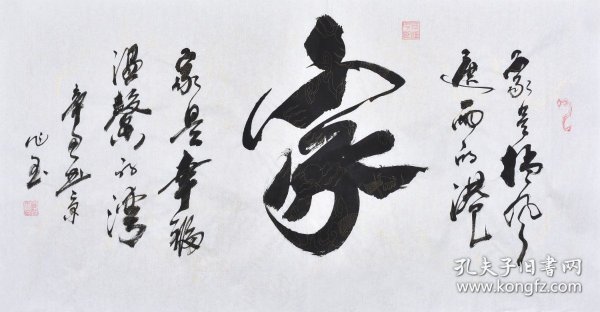 家是挡风
遮雨的港
家
家是幸福
温馨的湾
孔夫子旧书网
www.kongfz.com